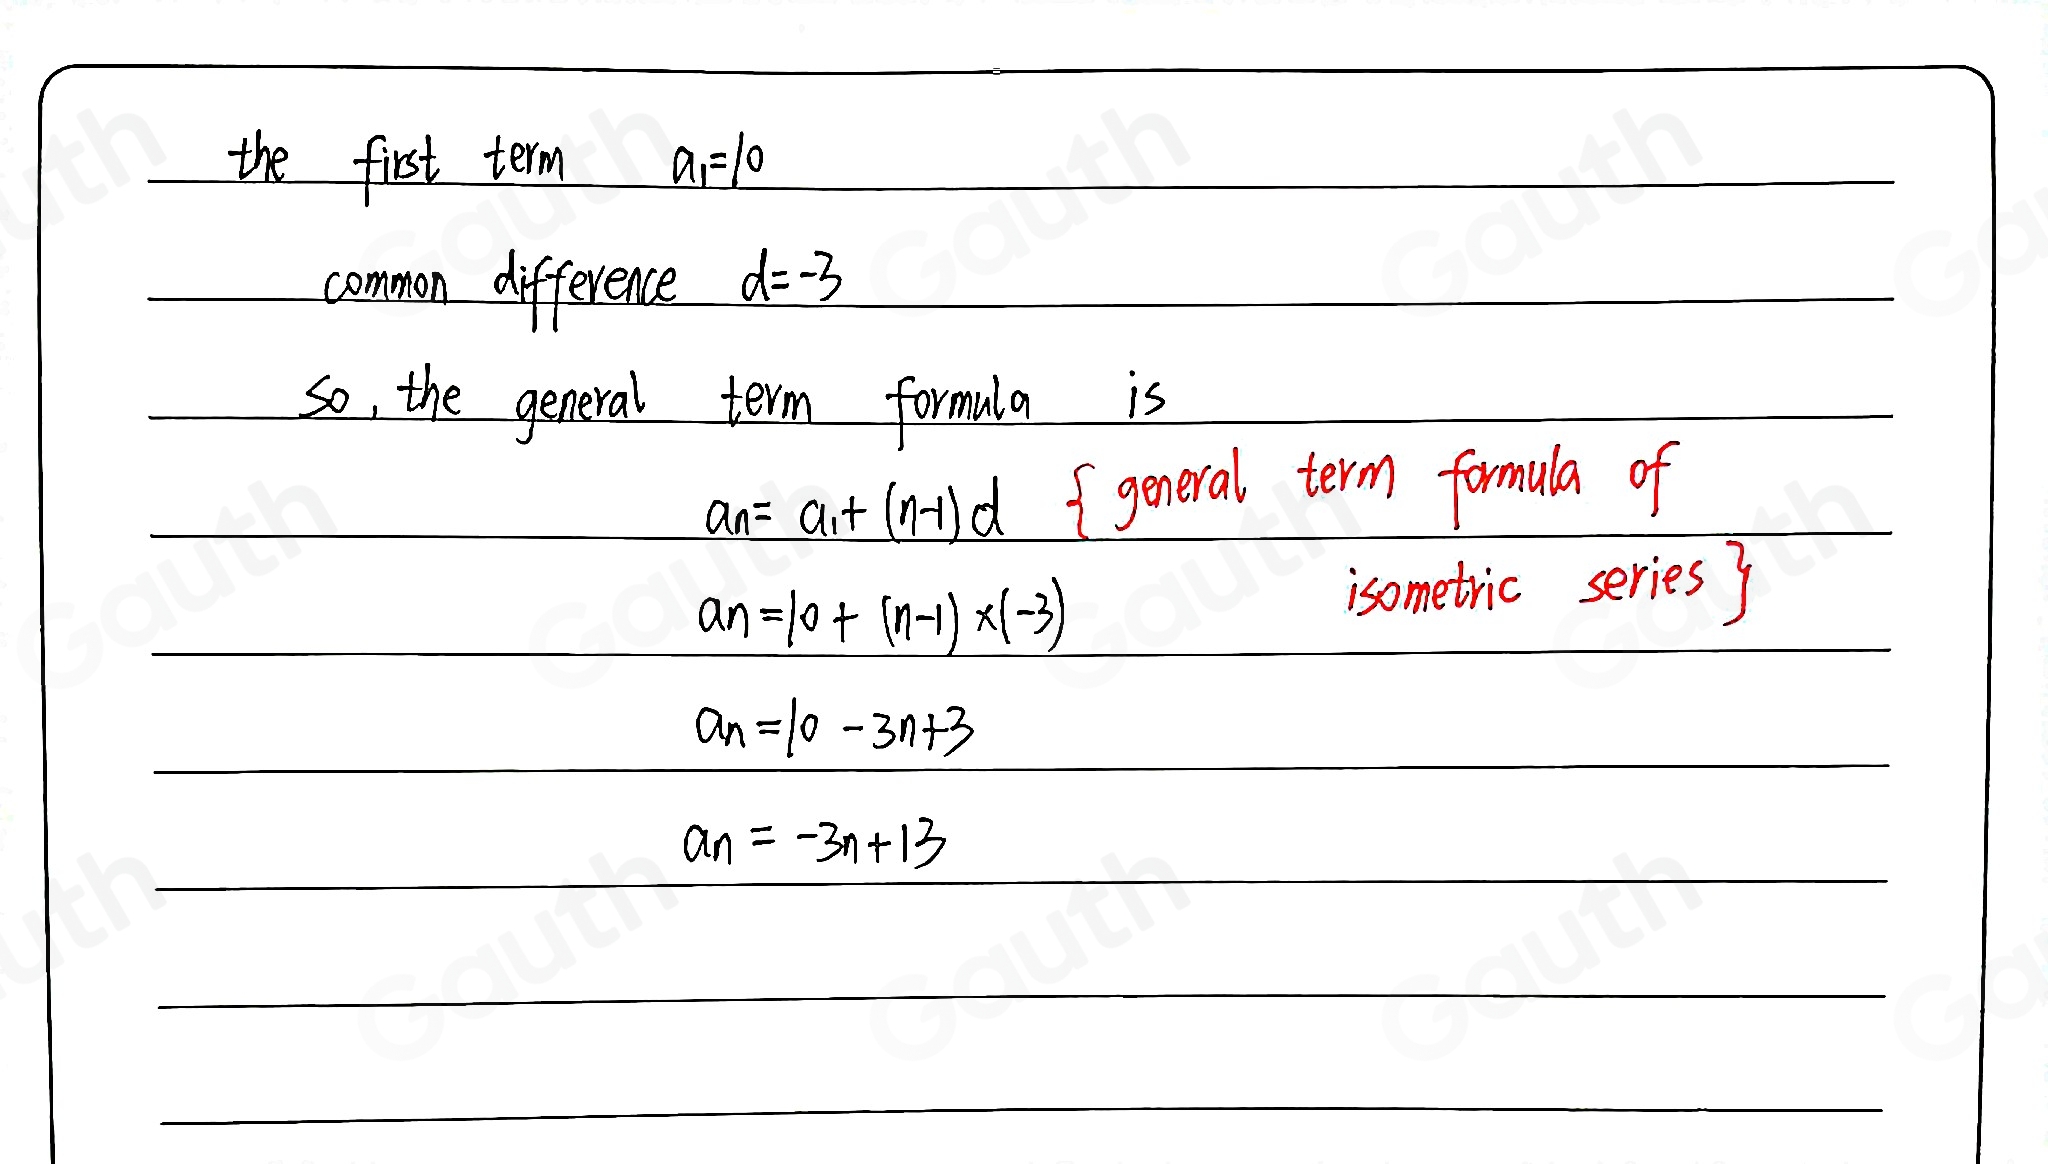 the first term a₁=10
common difference d=-3
so, the general term formula is
an= a₁+ (n-1)d { general term formula of
isometric series }
an=10+ (n-1)×(-3)
an=10 -3n+3
an = -3n+13
Gauth